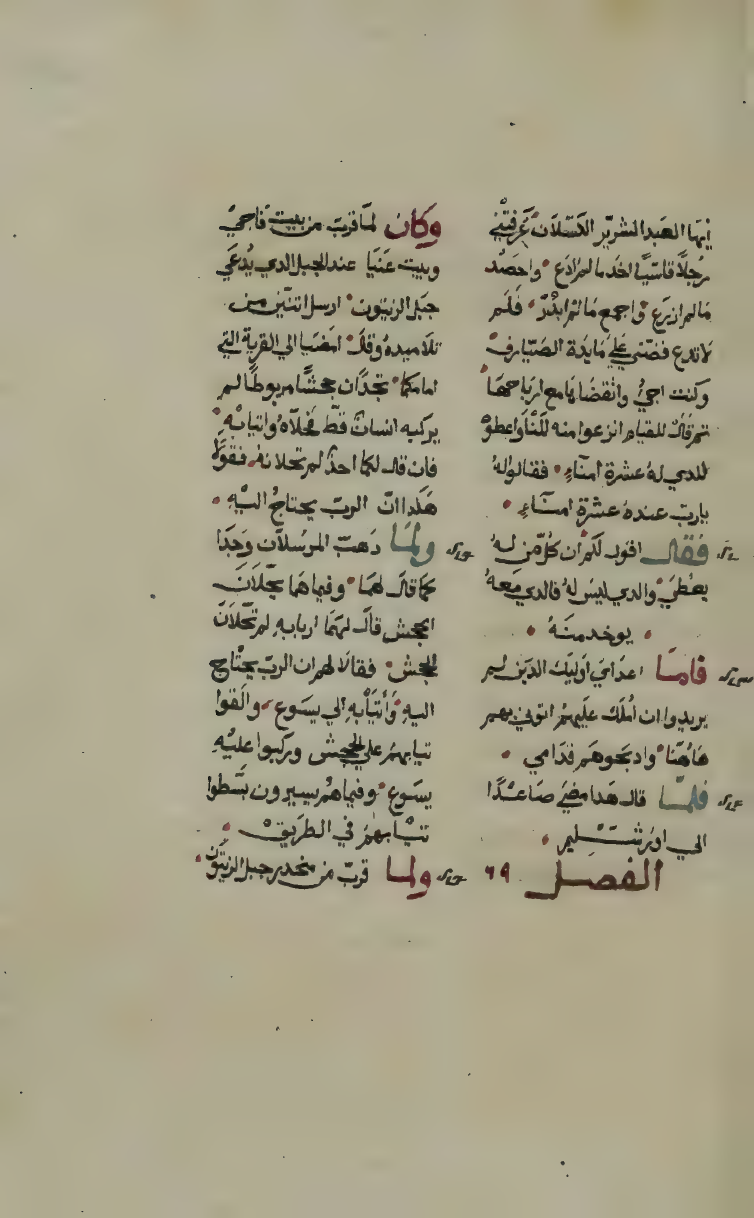 ايها العبد الشرير الكسلان عرفتني
رجلاً قاسيًا اخد ما لم ادع واحصد
ما لم ازرع واجمع ما لم ابذر فلم
لا تدع فضتي علي مايدة الصيارف
وكنت اجي واتقضاها مع ارباحها
ثم قال للقيام انزعوا منه المنا واعطوا
للدي له عشرة امناء فقالوا له
يارب عنده عشرة امناء
فقال اقول لكم ان كل من له
يعطي والدي ليس له فالدي معه
يوخد منه
فاما اعداي اوليك الدين لم
يريدوا ان املك عليهم اتوني بهم
هاهنا وادبحوهم قدامي
فلما قال هدا مضي صاعدًا
الي اورشليم
الفصل ٦٩
وكان لما قرب من بيت فاجي
وبيت عنيا عند الجبل الدي يدعي
جبل الزيتون ارسل اتنين من
تلاميده وقال امضيا الي القرية التي
امامكما تجدان جحشًا مربوطًا لم
يركبه انسان قط فحلاه واتيا به
فان قال لكما احد لم تحلانه فقولا
هكدا ان الرب يحتاج اليه
ولما دهب المرسلان وجدا
كما قال لهما وفيما هما يحلان
الجحش قال لهما اربابه لم تحلان
الجحش فقالا لهم ان الرب يحتاج
اليه وأتيا به الي يسوع والقوا
تيابهم علي الجحش وركبوا عليه
يسوع وفيما هم يسيرون بسطوا
تيابهم في الطريق
ولما قرب من منحدر جبل الزيتون